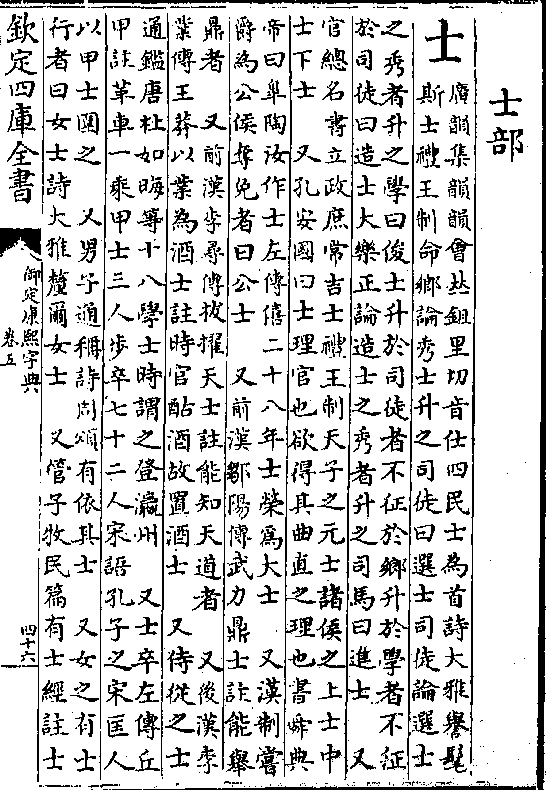 士部
士
廣韻集韻韻會𠀤鉏里切音仕四民士為首詩大雅譽髦
斯士禮王制命鄉論秀士升之司徒曰選士司徒論選士
之秀者升之學曰俊士升於司徒者不征於鄉升於學者不征
於司徒曰造士大樂正論造士之秀者升之司馬曰進士　又
官總名書立政庶常吉士禮王制天子之元士諸侯之上士中
士下士　又孔安國曰士理官也欲得其曲直之理也書舜典
帝曰皐陶汝作士左傳僖二十八年士榮為大士　又漢制嘗
爵為公侯奪免者曰公士　又前漢鄒陽傳武力鼎士註能舉
鼎者　又前漢李尋傳拔擢天士註能知天道者　又後漢李
業傳王莽以業為酒士註時官酤酒故置酒士　又侍從之士
通鑑唐杜如晦等十八學士時謂之登瀛州　又士卒左傳丘
甲註革車一乘甲士三人步卒七十二人宋語孔子之宋匡人
以甲士圍之　又男子通稱詩周頌有依其士　又女之有士
行者曰女士詩大雅釐爾女士　又管子牧民篇有士經註士
欽定四庫全書
御定康熙字典
卷五
四十六